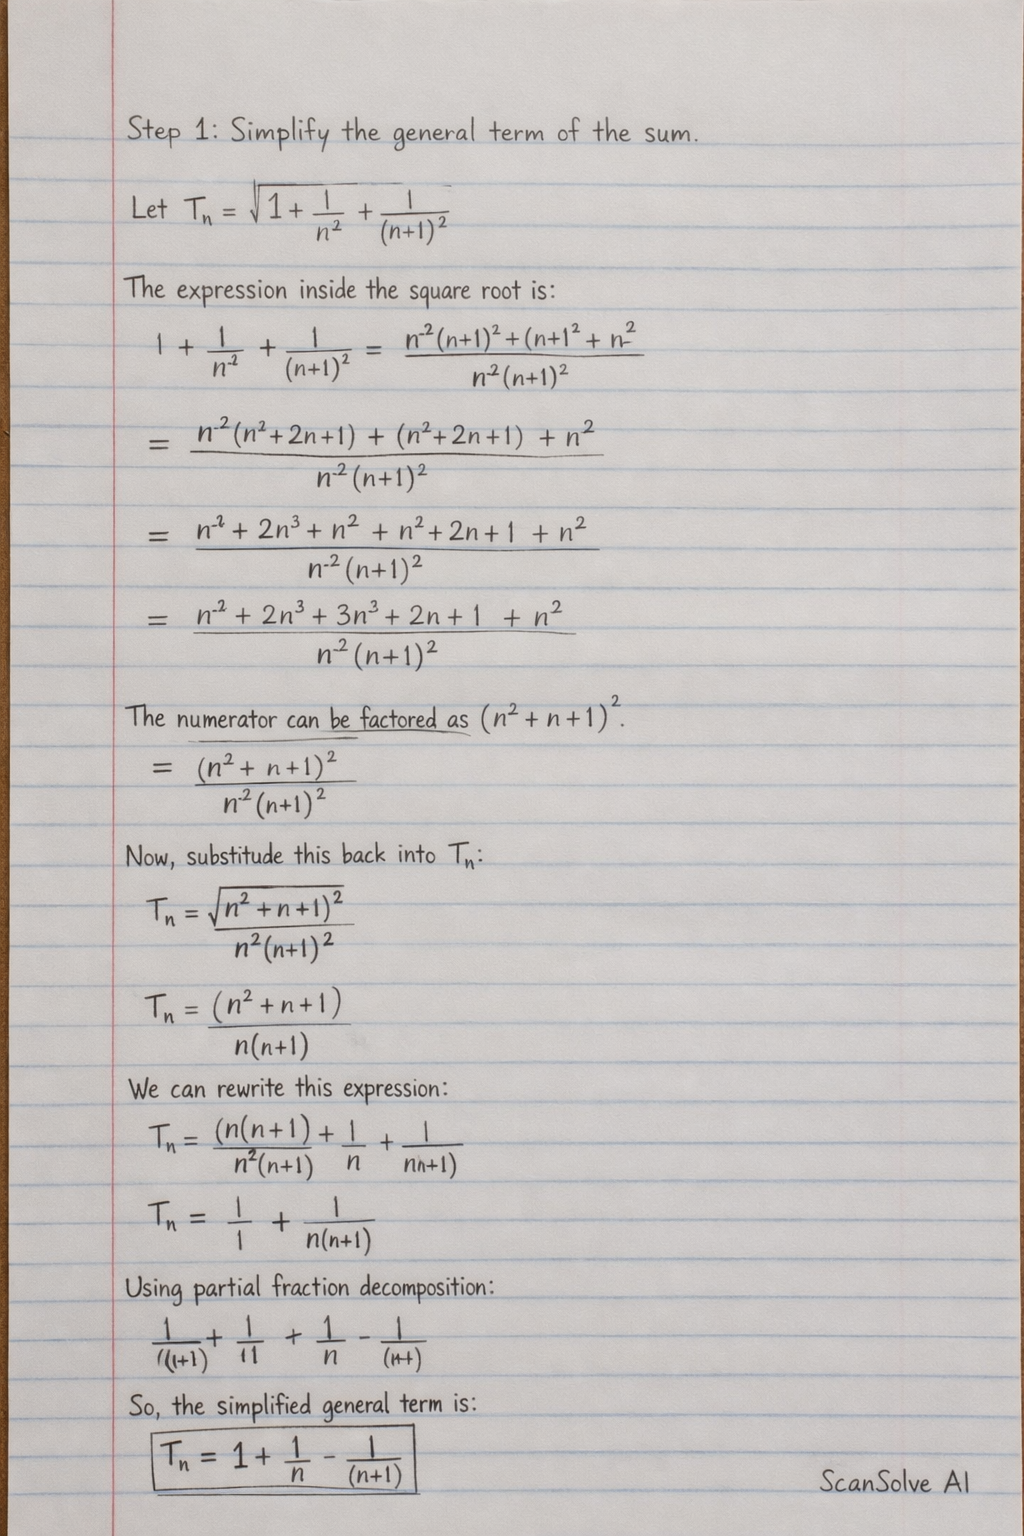 Step 1: Simplify the general term of the sum.
Let Tₙ = √(1 + 1/n² + 1/(n+1)²)
The expression inside the square root is:
1 + 1/n⁻² + 1/(n+1)² = (n⁻²(n+1)² + (n+1² + n²)/(n⁻²(n+1)²)
= (n⁻²(n²+2n+1) + (n²+2n+1) + n²)/(n⁻²(n+1)²)
= (n⁻² + 2n³ + n² + n² + 2n + 1 + n²)/(n⁻²(n+1)²)
= (n⁻² + 2n³ + 3n³ + 2n + 1 + n²)/(n⁻²(n+1)²)
The numerator can be factored as (n² + n + 1)².
= (n² + n+1)²/(n⁻²(n+1)²)
Now, substitude this back into Tₙ:
Tₙ = √(n² + n+1)²/(n²(n+1)²)
Tₙ = (n² + n+1)/(n(n+1))
We can rewrite this expression:
Tₙ = (n(n+1)/(n²(n+1)) + 1/n + 1/(nn+1)
Tₙ = 1/1 + 1/(n(n+1))
Using partial fraction decomposition:
+ 1/11 + 1/n - 1/
So, the simplified general term is:
Tₙ = 1 + 1/n - 1/(n+1)
ScanSolve AI